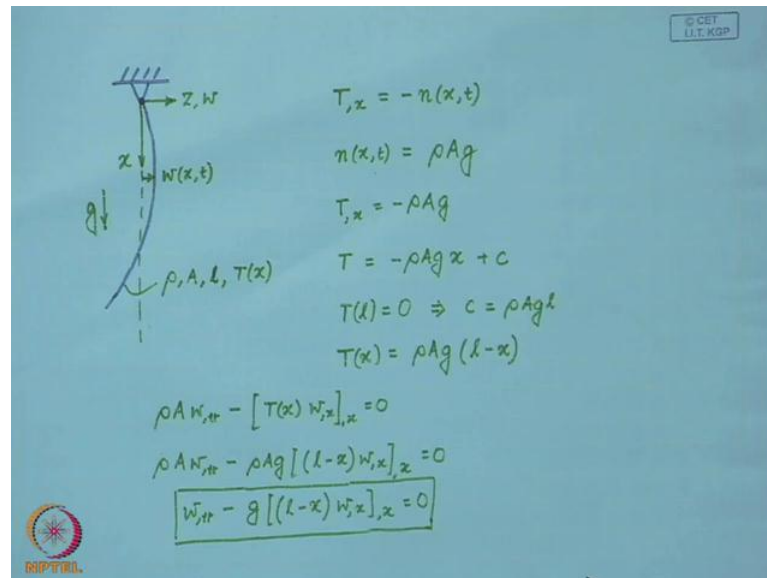 © CET
I.I.T. KGP
z, w
x
w(x,t)
g
ρ, A, l, T(x)
T,x = -n(x,t)
n(x,t) = ρAg
T,x = -ρAg
T = -ρAg x + c
T(l) = 0 ⇒ c = ρAgl
T(x) = ρAg (l-x)
ρA w,tt - [T(x) w,x],x = 0
ρA w,tt - ρAg [(l-x) w,x],x = 0
w,tt - g [(l-x) w,x],x = 0
NPTEL